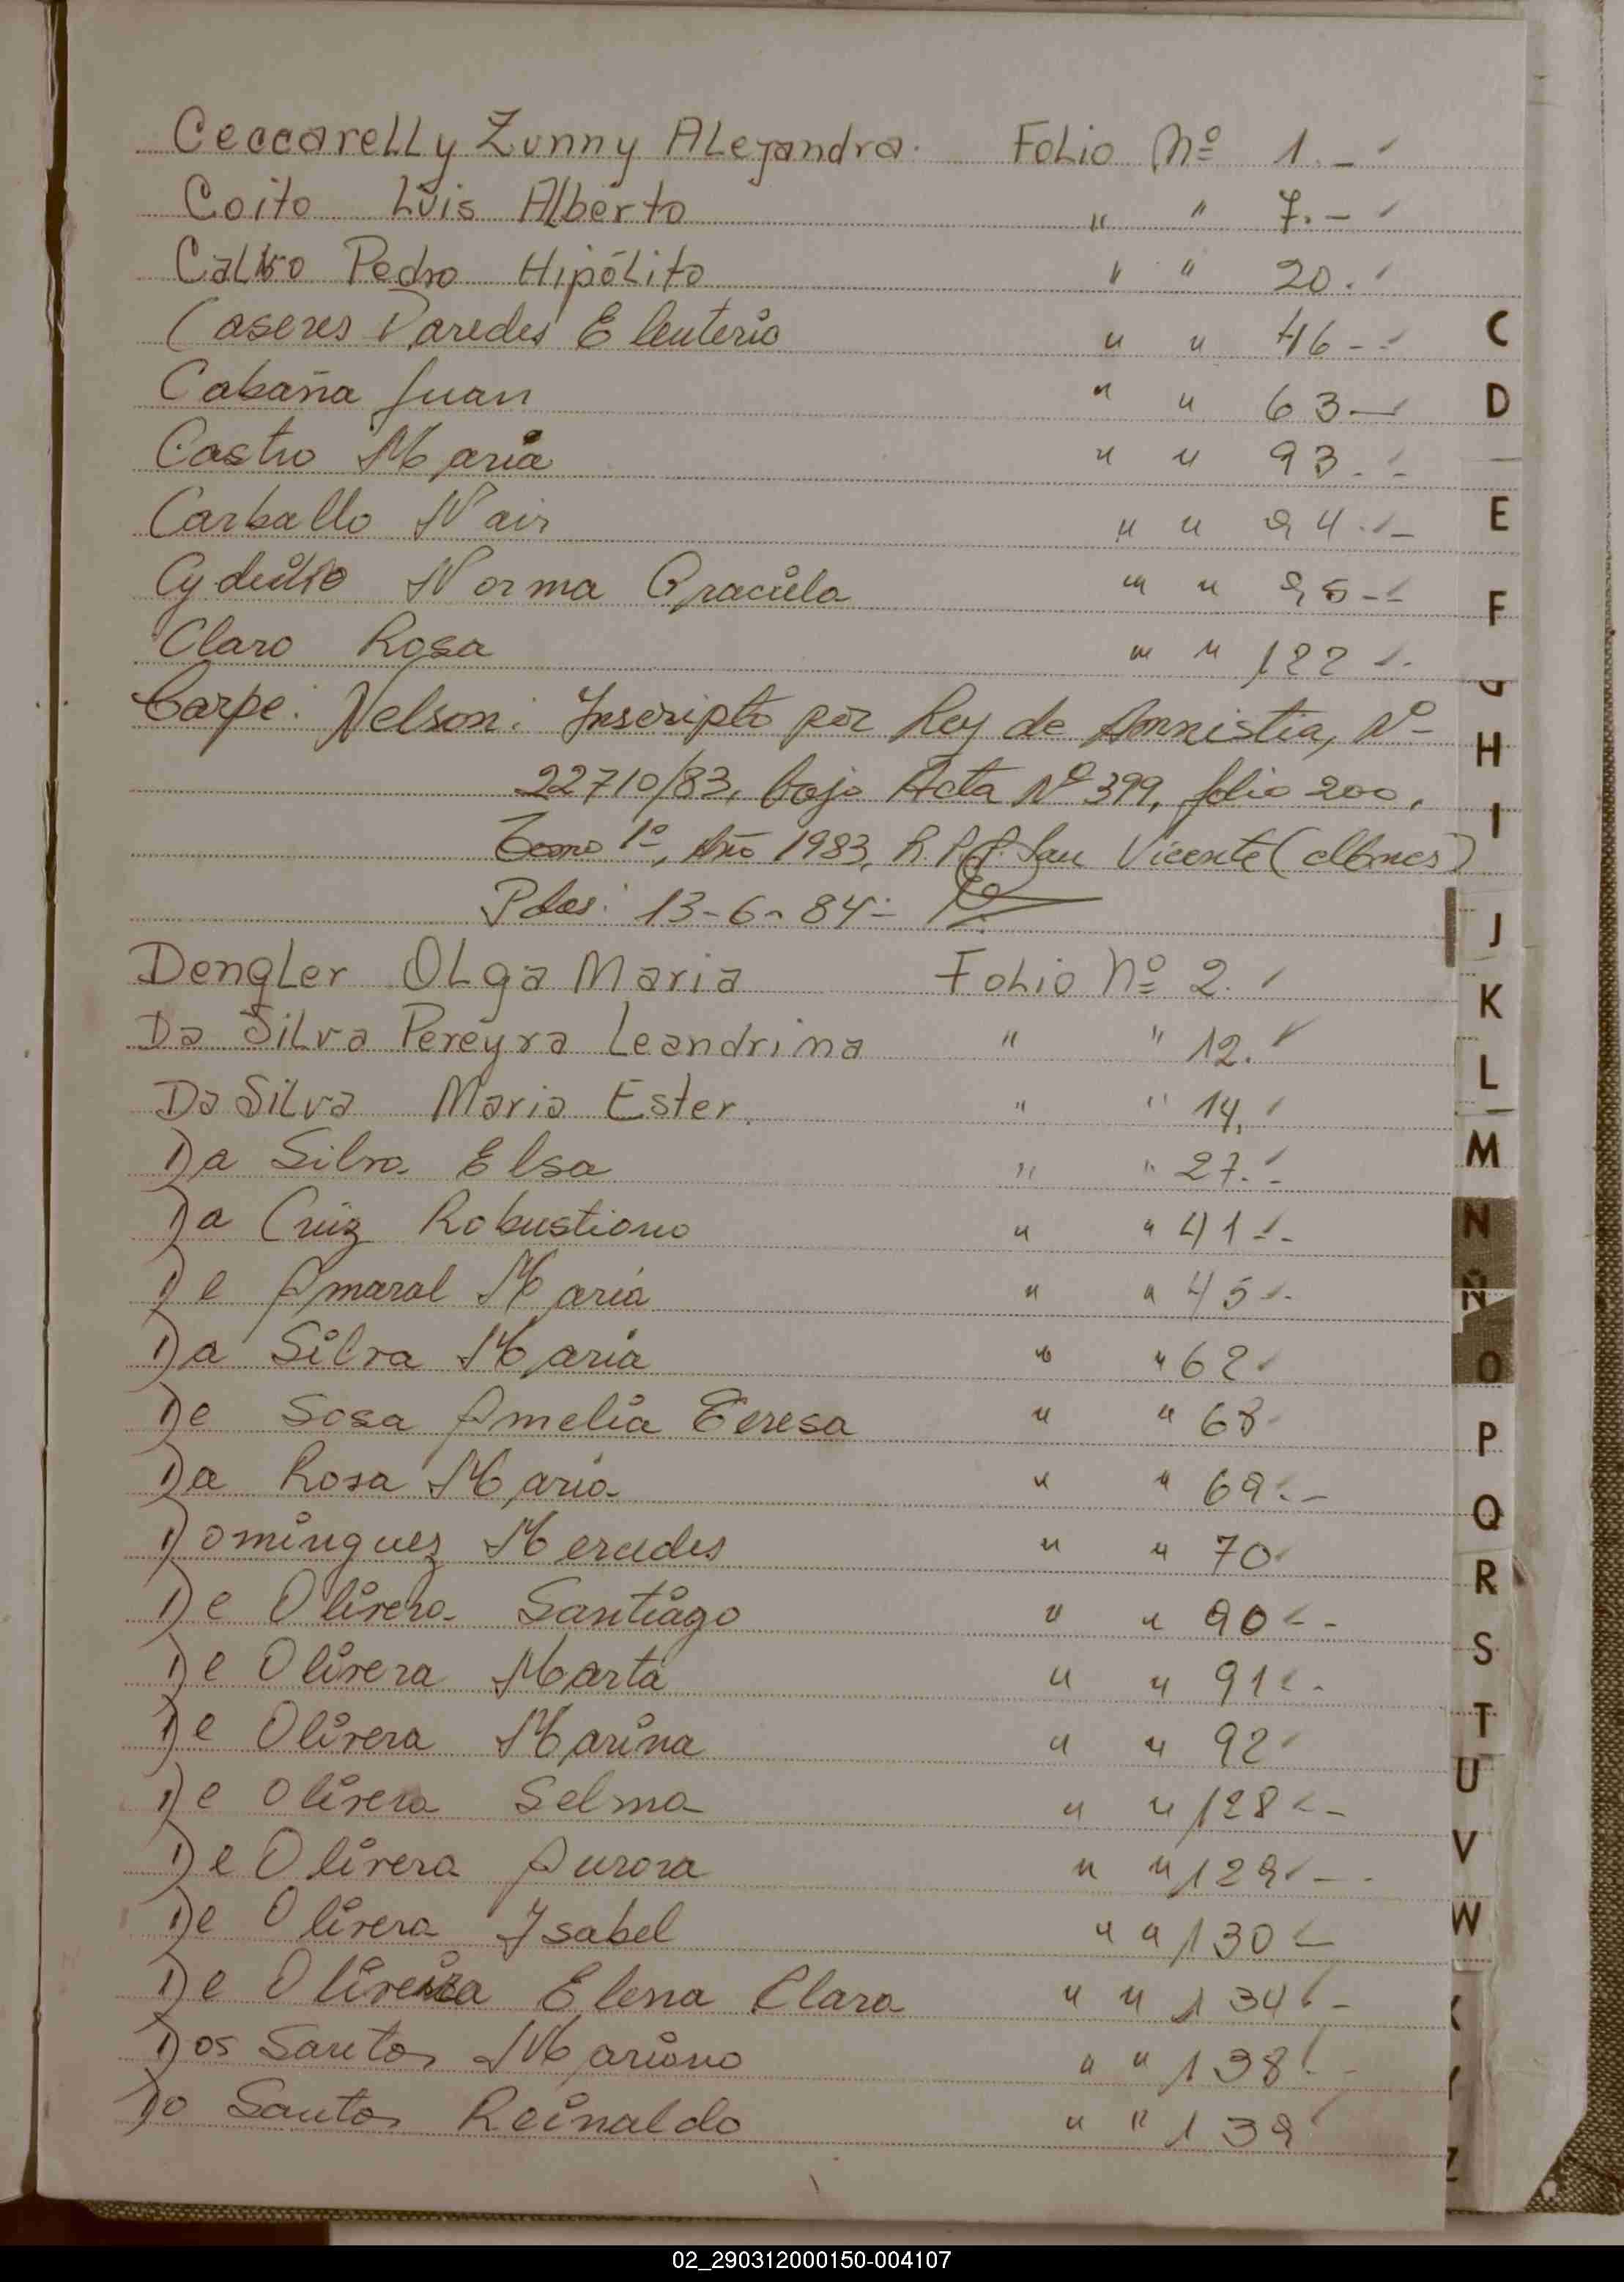 Ceccarelly Zunny Alejandra. Folio Nº 1.-
Coito Luis Alberto " " 7.-
Calvo Pedro Hipólito " " 20.
Caseres Paredes Eleuterio " " 46-
Cabaña Juan " " 63-
Castro Maria " " 93.-
Carballo Nair " " 94.-
Norma Graciela " " 95-
Claro Rosa " " 122-
Carpe: Nelson: Inscripto por Ley de Amnistia, Nº
22710/83, bajo Acta Nº 399, folio 200,
Tomo 1º, Año 1983, R.P.P. San Vicente
Pdas: 13-6-84-
Dengler Olga Maria Folio Nº 2.
Da Silva Pereyra Leandrina " " 12.
Da Silva Maria Ester. " " 14.
Da Silva Elsa " " 27.-
Da Cruz Robustiano " " 41-
De Amaral Maria " " 45-
Da Silva Maria " " 62
De Sosa Amelia Teresa " " 68
Da Rosa Maria " " 69.-
Dominguez Mercedes " " 70
De Olivera Santiago " " 90-
De Olivera Marta " " 91-
De Olivera Marina " " 92
De Olivera Selma " " 128-
De Olivera Aurora " " 129-
De Olivera Ysabel " " 130-
De Oliveira Elena Clara " " 134-
Dos Santos Mariano " " 138-
Do Santos Reinaldo " " 139
C
D
E
F
G
H
I
J
K
L
M
N
Ñ
O
P
Q
R
S
T
U
V
W
X
Y
Z
02_290312000150-004107